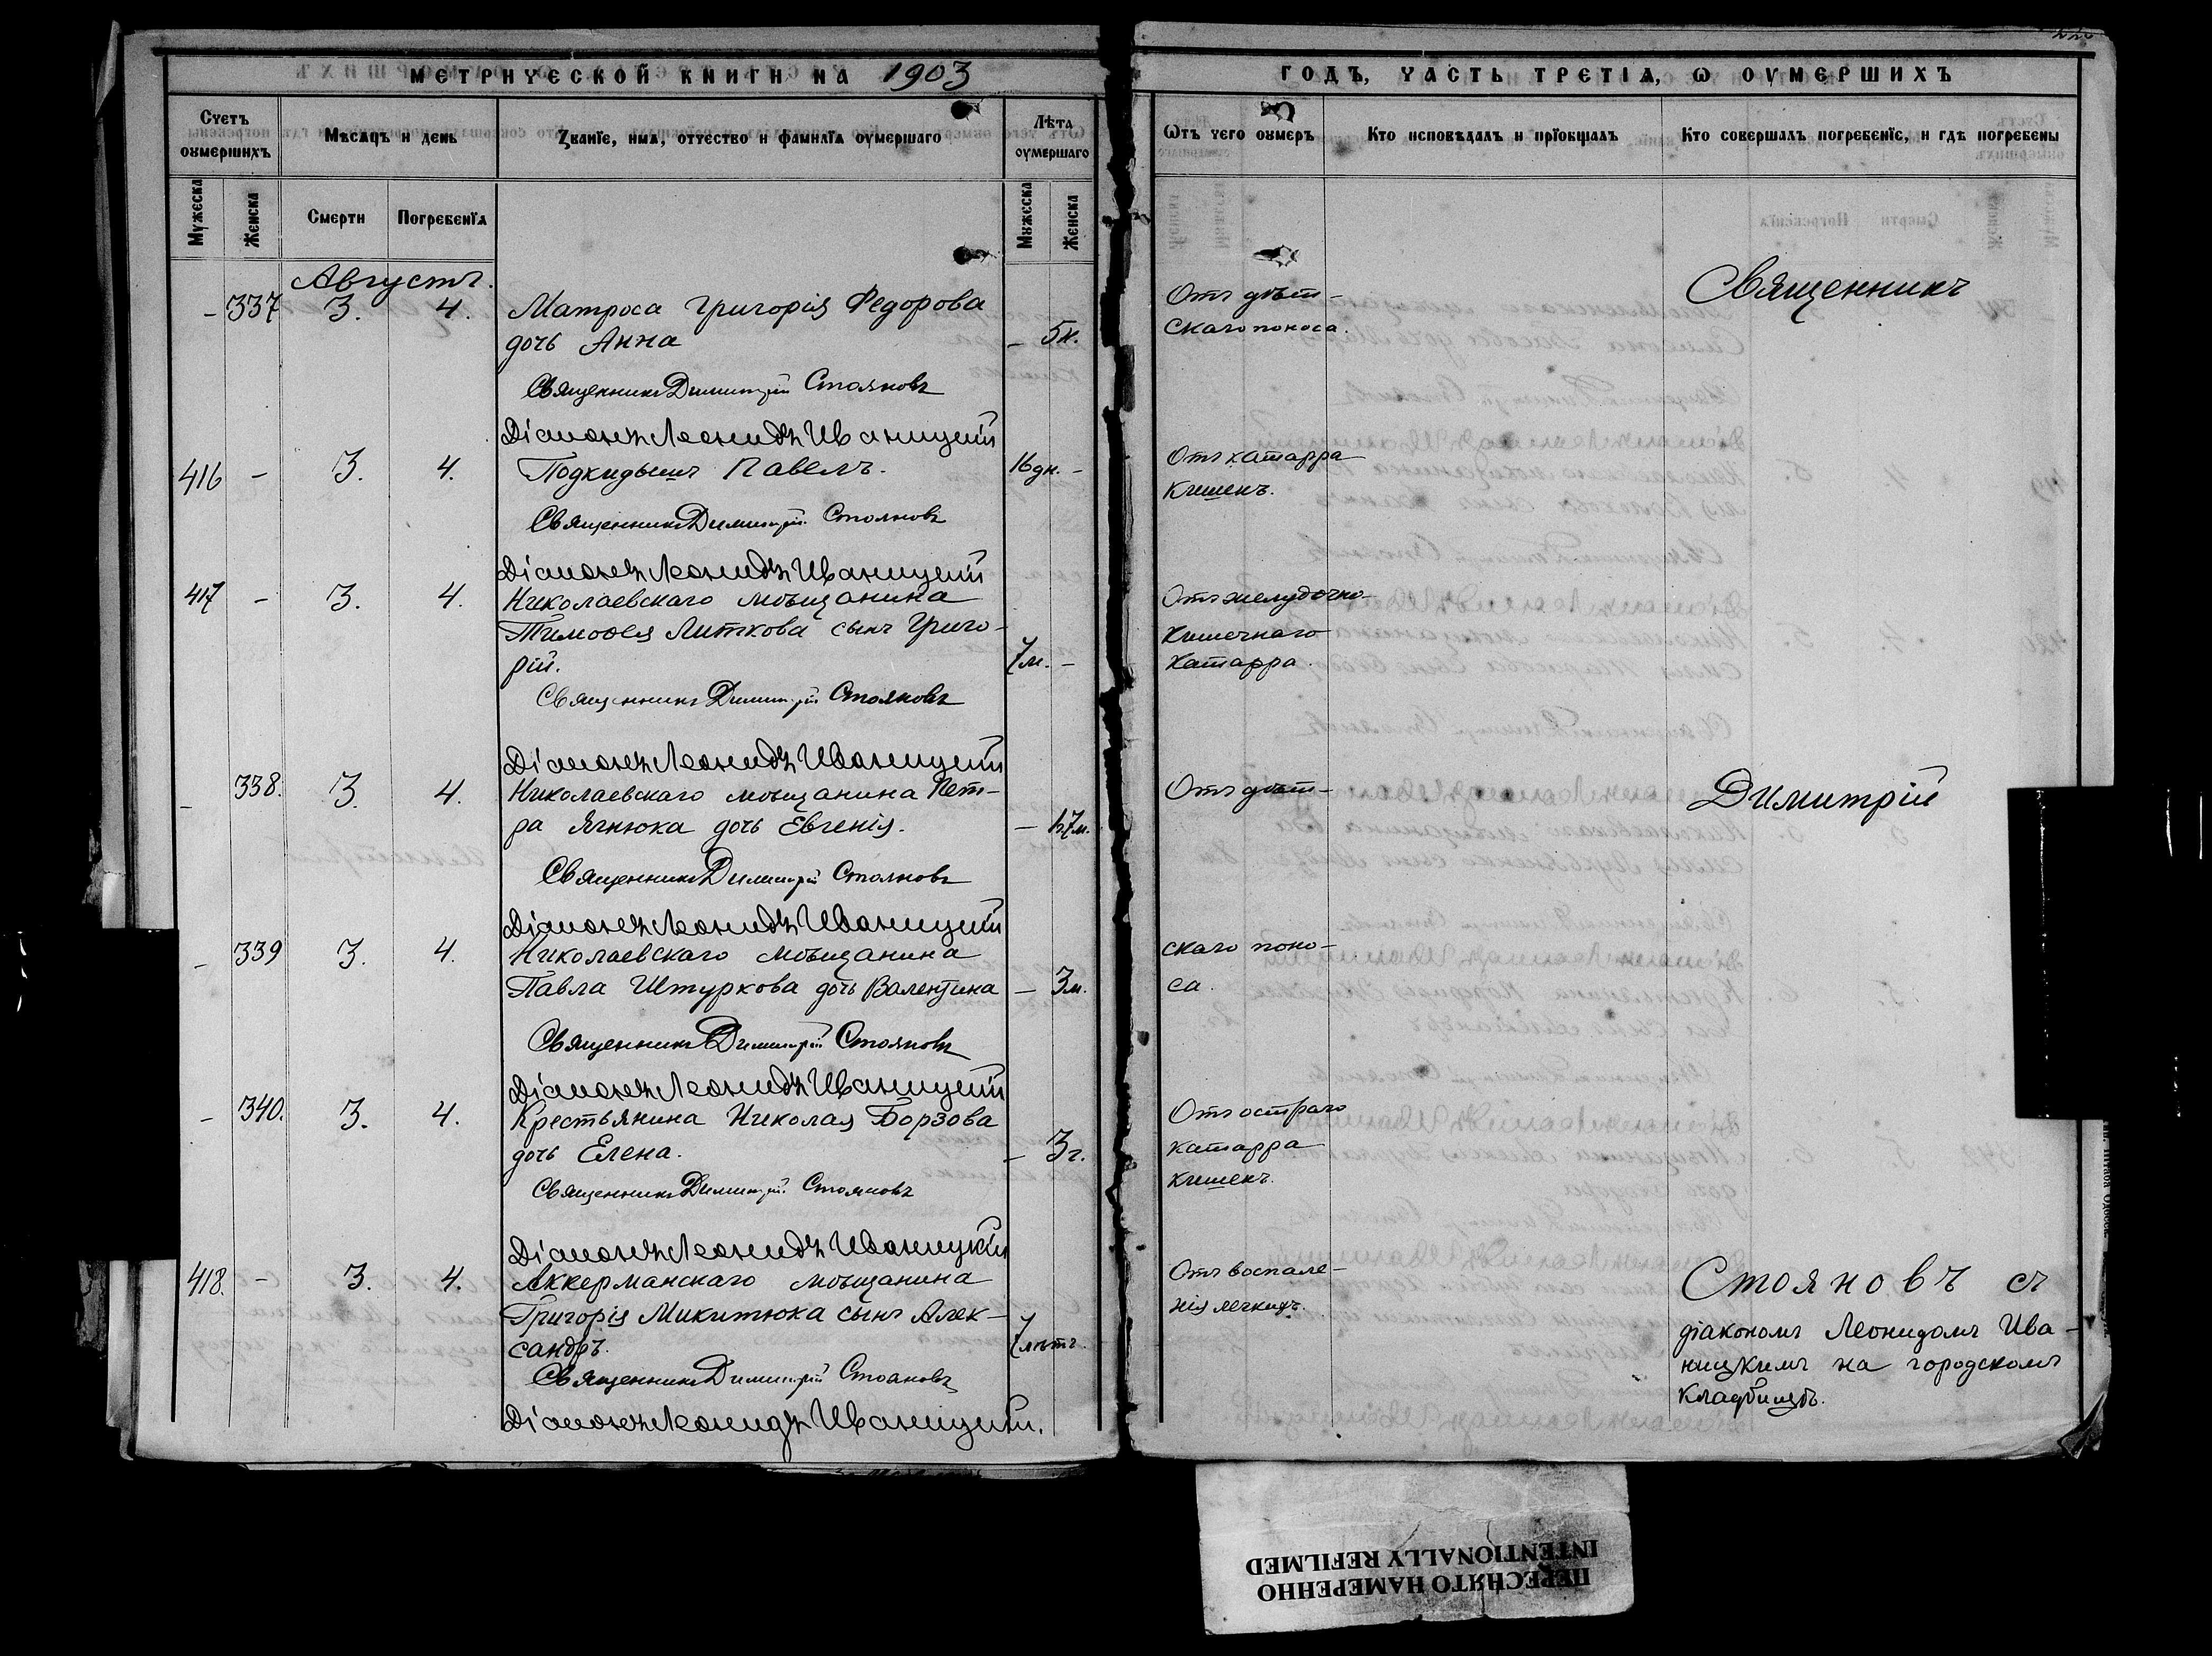 МЕТРИЧЕСКОЙ КНИГИ НА 1903
Счетъ оумершихъ
Мѣсяцъ и день
Званїе, имя, отчество и фамилїя оумершаго
Лѣта оумершаго
Мужеска
Женска
Смерти
Погребенїя
Мужеска
Женска
Августъ.
- 337 3. 4. Матроса Григорія Федорова
дочь Анна - 5н.
Священникъ Димитрій Стояновъ
Діаконъ Леонидъ Иваницкій
416 - 3. 4. Подкидышъ Павелъ. 16дн. -
Священникъ Димитрій Стояновъ
Діаконъ Леонидъ Иваницкій
417 - 3. 4. Николаевскаго мѣщанина
Тимоѳея Литкова сынъ Григо-
рій. 7м. -
Священникъ Димитрій Стояновъ
Діаконъ Леонидъ Иваницкій
- 338. 3. 4. Николаевскаго мѣщанина Пет-
ра Ягнюка дочь Евгенія. -
Священникъ Димитрій Стояновъ
Діаконъ Леонидъ Иваницкій
- 339 3. 4. Николаевскаго мѣщанина
Павла Штуркова дочь Валентина - 3м.
Священникъ Димитрій Стояновъ
Діаконъ Леонидъ Иваницкій
- 340. 3. 4. Крестьянина Николая Борзова
дочь Елена. - 3г.
Священникъ Димитрій Стояновъ
Діаконъ Леонидъ Иваницкій
418. - 3. 4. Аккерманскаго мѣщанина
Григорія Микитюка сынъ Алек-
сандръ. 7лѣтъ.
Священникъ Димитрій Стояновъ
Діаконъ Леонидъ Иваницкій.
ГОДЪ, ЧАСТЬ ТРЕТІЯ, Ѡ ОУМЕРШИХЪ
Ѡтъ чего оумеръ
Кто исповѣдалъ и прїобщалъ
Кто совершалъ погребенїе, и гдѣ погребены
Отъ дѣт-
скаго поноса.
Священникъ
Отъ катарра
кишекъ.
Отъ желудочно-
кишечнаго
катарра.
Отъ дѣт-
Димитрій
скаго поно-
са.
Отъ остраго
катарра
кишекъ.
Отъ воспале-
нія легкихъ.
Стояновъ съ
діакономъ Леонидомъ Ива-
ницкимъ на городскомъ
кладбищѣ.
ПЕРЕСНЯТО НАМЕРЕННО
INTENTIONALLY REFILMED